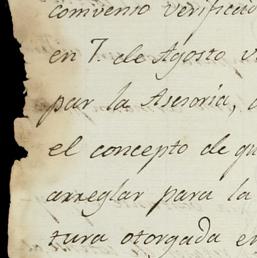 convenio verificad
en 7. de Agosto
par la Asesoría,
el concepto de qu
arreglar para la
tura otorgada en